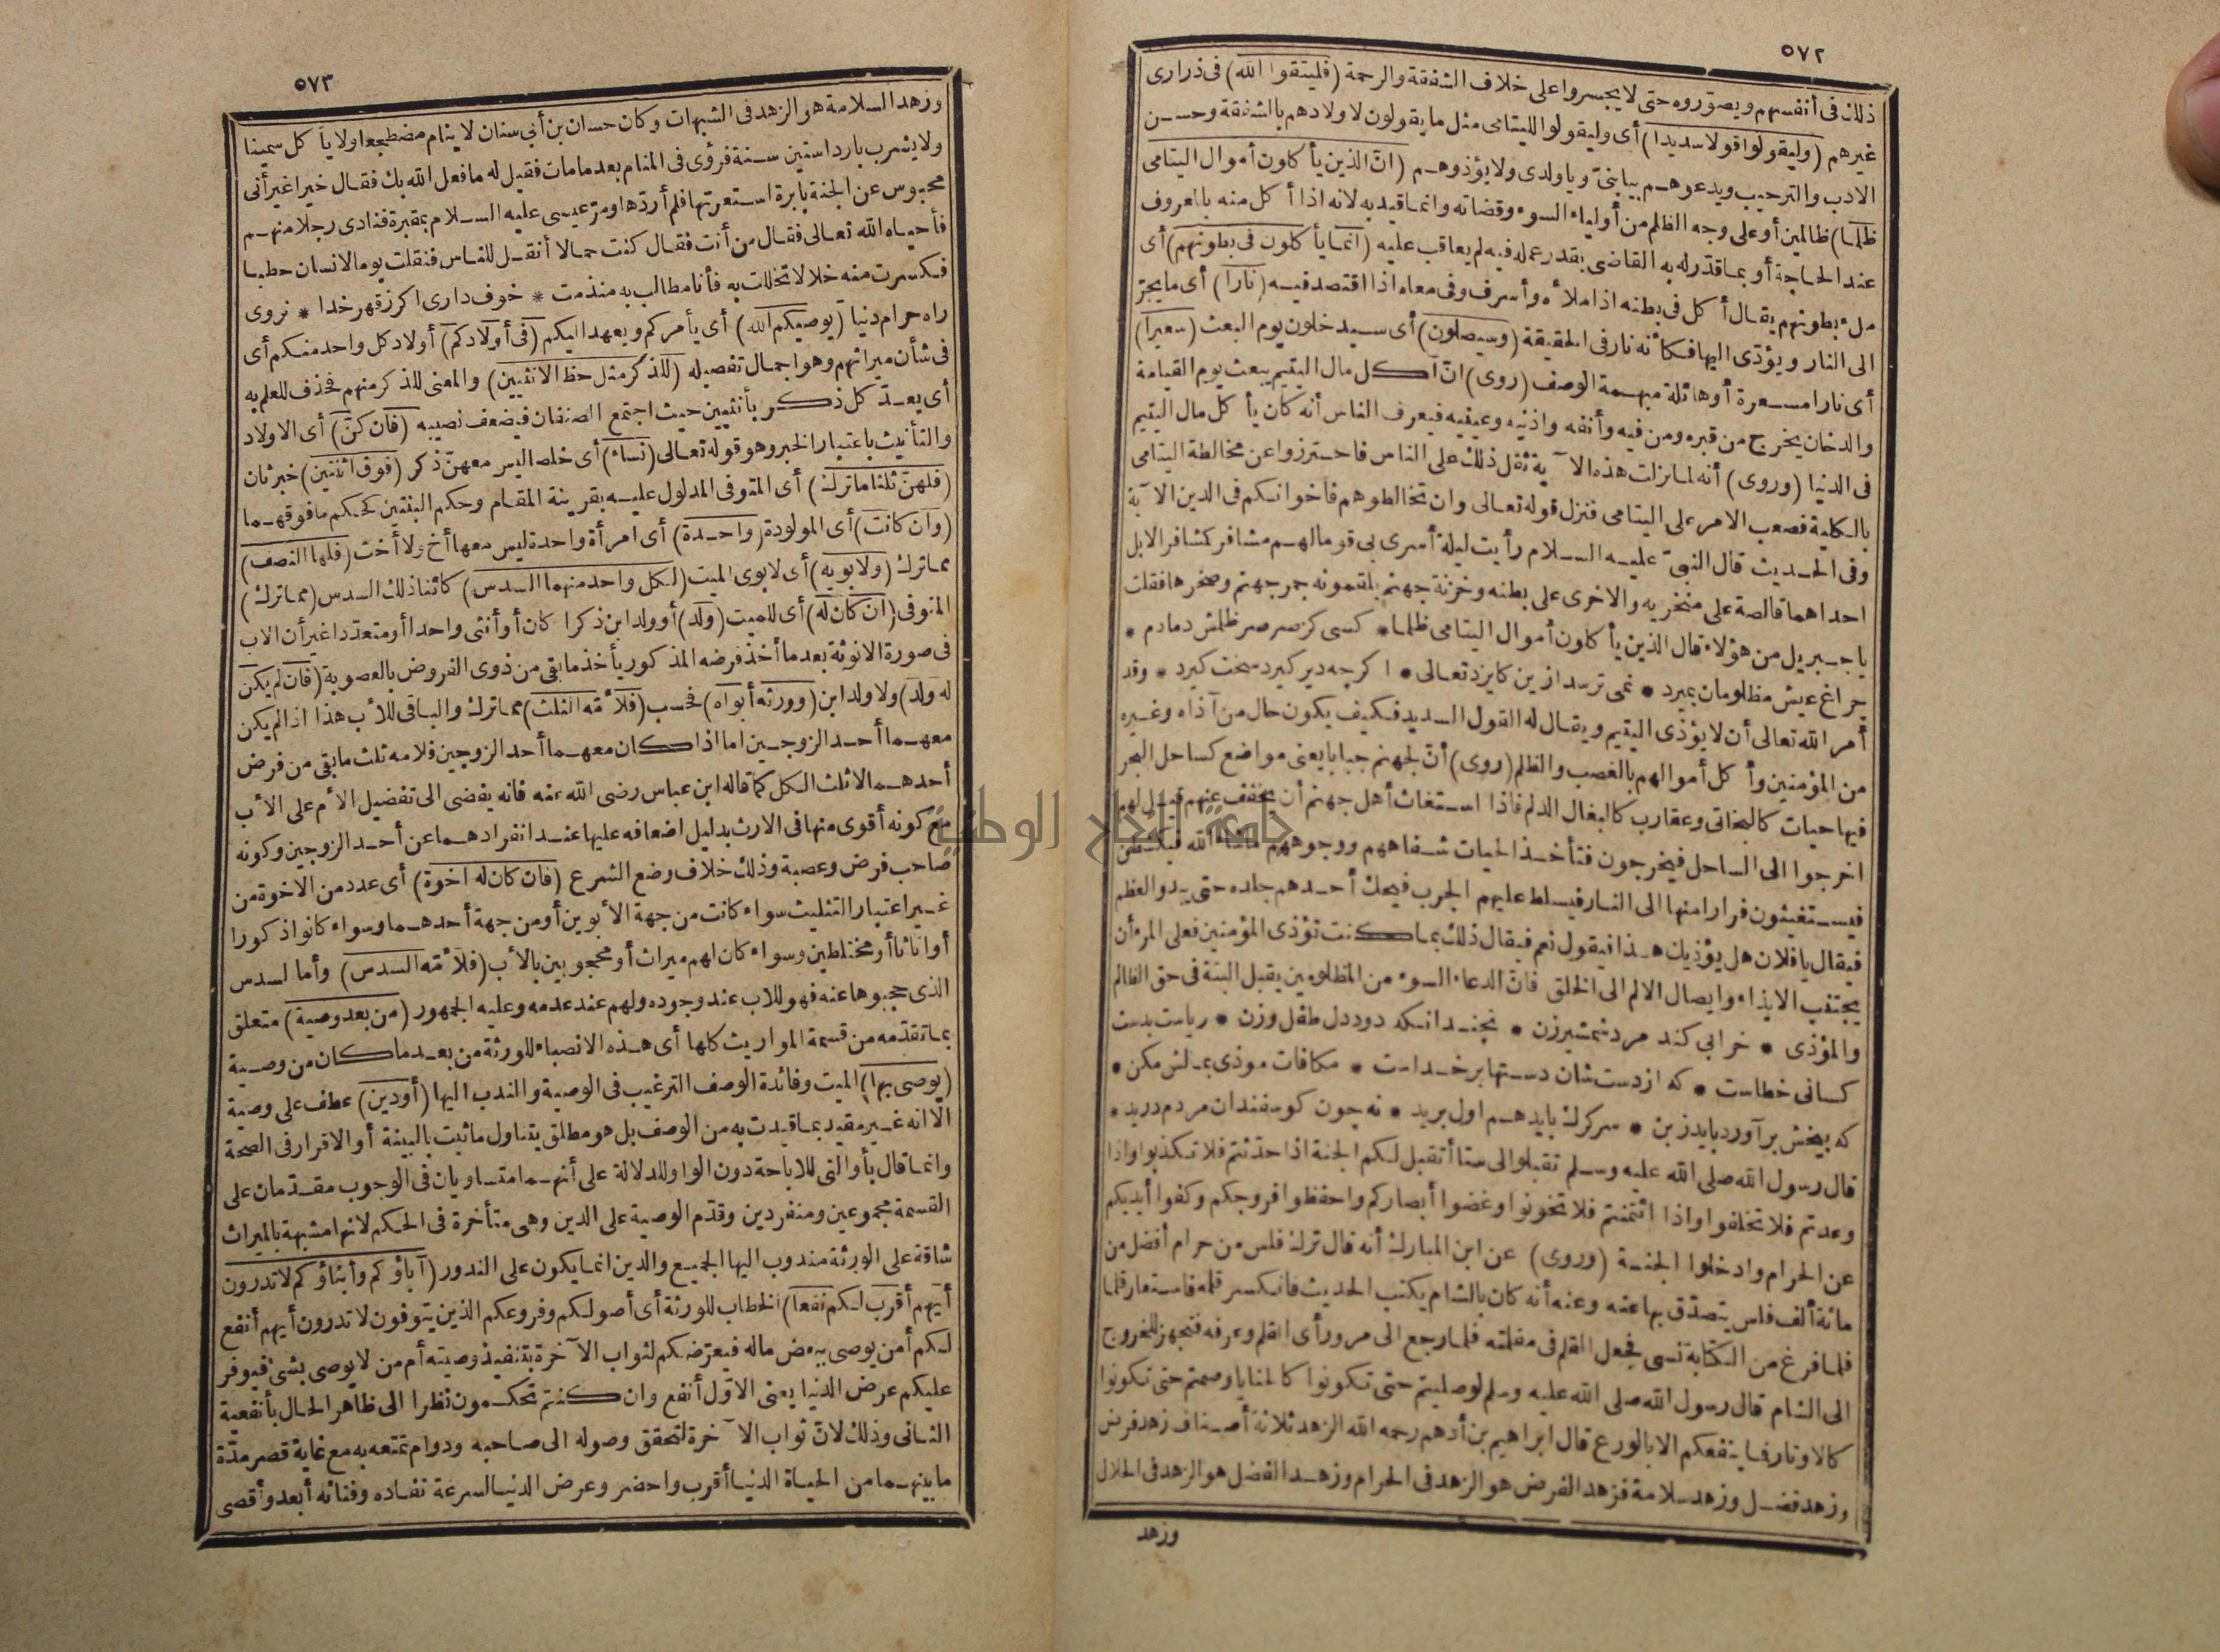 ٥٧٢
ذلك فى أنفسهم ويصوّروه حتى لا يجسروا على خلاف الشفقة والرحمة (فليتقوا الله) فى ذرارى
غيرهم (وليقولوا قولا سديدا) أى وليقولوا لليتامى مثل ما يقولون لاولادهم بالشفقة وحسن
الادب والترحيب ويدعوهم بيابنىّ وياولدى ولا يؤذوهم (انّ الذين يأكلون أموال اليتامى
ظلما) ظالمين أو على وجه الظلم من أولياء السوء وقضاته وانما قيد به لانه اذا أكل منه بالمعروف
عند الحاجة أو بما قدّر له به القاضى بقدر عمله فيه لم يعاقب عليه (انما يأكلون فى بطونهم) أى
ملء بطونهم يقال أكل فى بطنه اذا ملأه وأسرف وفى معاه اذا اقتصد فيه (نارا) أى ما يجرّ
الى النار ويؤدّى اليها فكأنه نار فى الحقيقة (وسيصلون) أى سيدخلون يوم البعث (سعيرا)
أى نارا مسعرة أو هائلة مبهمة الوصف (روى) انّ آكل مال اليتيم يبعث يوم القيامة
والدخان يخرج من قبره ومن فيه وأنفه واذنيه وعينيه فيعرف الناس أنه كان يأكل مال اليتيم
فى الدنيا (وروى) أنه لما نزلت هذه الآية ثقل ذلك على الناس فاحترزوا عن مخالطة اليتامى
بالكلية فصعب الامر على اليتامى فنزل قوله تعالى وان تخالطوهم فاخوانكم فى الدين الآية
وفى الحديث قال النبىّ عليه السلام رأيت ليلة أسرى بى قوما لهم مشافر كمشافر الابل
احداهما قالصة على منخريه والاخرى على بطنه وخزنة جهنم يلقمونه جمر جهنم وصخرها فقلت
يا جبريل من هؤلاء قال الذين يأكلون أموال اليتامى ظلما * كسى كز صرصر ظلمش دمادم *
چراغ عيش مظلومان بميرد * نمى ترسد ازين كايزد تعالى * اكرچه دير كيرد سخت كيرد * وقد
أمر الله تعالى أن لا يؤذى اليتيم ويقال له القول السديد فكيف يكون حال من آذاه وغيره
من المؤمنين وأكل أموالهم بالغصب والظلم (روى) أنّ لجهنم جبابا يعنى مواضع كساحل البحر
فيها حيات كالبخاتى وعقارب كالبغال الدلم فاذا استغاث أهل جهنم أن يخفف عنهم قيل لهم
اخرجوا الى الساحل فيخرجون فتأخذ الحيات شفاههم ووجوههم ما شاء الله فيكشطن
فيستغيثون فرارا منها الى النار فيسلط عليهم الجرب فيحك أحدهم جلده حتى يبدو العظم
فيقال يا فلان هل يؤذيك هذا فيقول نعم فيقال ذلك بما كنت تؤذى المؤمنين فعلى المرء أن
يجتنب الايذاء وايصال الالم الى الخلق فانّ الدعاء السوء من المظلومين يقبل البتة فى حق الظالم
والمؤذى * خرابى كند مرد شمشيرزن * نچندانكه دود دل طفل وزن * رياست بدست
كسانى خطاست * كه از دست شان دستها بر خداست * مكافات موذى بمالش مكن *
كه بيخش بر آورد بايد زبن * سر كرك بايد هم اول بريد * نه چون كوسفندان مردم دريد *
قال رسول الله صلى الله عليه وسلم تقبلوا الى ستا أتقبل لكم الجنة اذا حدّثتم فلا تكذبوا واذا
وعدتم فلا تخلفوا واذا ائتمنتم فلا تخونوا وغضوا أبصاركم واحفظوا فروجكم وكفوا أيديكم
عن الحرام وادخلوا الجنة (وروى) عن ابن المبارك أنه قال ترك فلس من حرام أفضل من
مائة ألف فلس يتصدّق بها عنه وعنه أنه كان بالشام يكتب الحديث فانكسر قلمه فاستعار قلما
فلما فرغ من الكتابة نسى فجعل القلم فى مقلمته فلما رجع الى مرو رأى القلم وعرفه فتجهز للخروج
الى الشام قال رسول الله صلى الله عليه وسلم لو صليتم حتى تكونوا كالحنايا وصمتم حتى تكونوا
كالاوتار فما ينفعكم الا بالورع قال ابراهيم بن أدهم رحمه الله الزهد ثلاثة أصناف زهد فرض
وزهد فضل وزهد سلامة فزهد الفرض هو الزهد فى الحرام وزهد الفضل هو الزهد فى الحلال
وزهد
٥٧٣
وزهد السلامة هو الزهد فى الشبهات وكان حسان بن أبى سنان لا ينام مضطجعا ولا يأكل سمينا
ولا يشرب باردا ستين سنة فرؤى فى المنام بعد ما مات فقيل له ما فعل الله بك فقال خيرا غير أنى
محبوس عن الجنة بابرة استعرتها فلم أردّها ومرّ عيسى عليه السلام بمقبرة فنادى رجلا منهم
فأحياه الله تعالى فقال من أنت فقال كنت حمالا أنقل للناس فنقلت يوما لانسان حطبا
فكسرت منه خلالا تخللت به فأنا مطالب به منذ مت * خوف دارى اكر زقهر خدا * نروى
راه حرام دنيا (يوصيكم الله) أى يأمركم ويعهد اليكم (فى أولادكم) أولاد كل واحد منكم أى
فى شأن ميراثهم وهو اجمال تفصيله (للذكر مثل حظ الانثيين) والمعنى للذكر منهم فحذف للعلم به
أى يعدّ كل ذكر بأنثيين حيث اجتمع الصنفان فيضعف نصيبه (فان كنّ) أى الاولاد
والتأنيث باعتبار الخبر وهو قوله تعالى (نساء) أى خلصا ليس معهنّ ذكر (فوق اثنتين) خبر ثان
(فلهنّ ثلثا ما ترك) أى المتوفى المدلول عليه بقرينة المقام وحكم البنتين كحكم ما فوقهما
(وان كانت) أى المولودة (واحدة) أى امرأة واحدة ليس معها أخ ولا أخت (فلها النصف)
مما ترك (ولابويه) أى لابوى الميت (لكل واحد منهما السدس) كائنا ذلك السدس (مما ترك)
المتوفى (ان كان له) أى للميت (ولد) أو ولد ابن ذكرا كان أو أنثى واحدا أو متعدّدا غير أن الاب
فى صورة الانوثة بعد ما أخذ فرضه المذكور يأخذ ما بقى من ذوى الفروض بالعصوبة (فان لم يكن
له ولد) ولا ولد ابن (وورثه أبواه) فحسب (فلأمّه الثلث) مما ترك والباقى للأب هذا اذا لم يكن
معهما أحد الزوجين اما اذا كان معهما أحد الزوجين فلامه ثلث ما بقى من فرض
أحدهما لا ثلث الكل كما قاله ابن عباس رضى الله عنه فانه يفضى الى تفضيل الأم على الأب
مع كونه أقوى منها فى الارث بدليل اضعافه عليها عند انفرادهما عن أحد الزوجين وكونه
صاحب فرض وعصبة وذلك خلاف وضع الشرع (فان كان له اخوة) أى عدد من الاخوة من
غير اعتبار التثليث سواء كانت من جهة الأبوين أو من جهة أحدهما وسواء كانوا ذكورا
أو اناثا أو مختلطين وسواء كان لهم ميراث أو محجوبين بالأب (فلأمّه السدس) وأما السدس
الذى حجبوها عنه فهو للاب عند وجوده ولهم عند عدمه وعليه الجمهور (من بعد وصية) متعلق
بما تقدّمه من قسمة المواريث كلها أى هذه الانصباء للورثة من بعد ما كان من وصية
(يوصى بها) الميت وفائدة الوصف الترغيب فى الوصية والندب اليها (أو دين) عطف على وصية
الا انه غير مقيد بما قيدت به من الوصف بل هو مطلق يتناول ما ثبت بالبينة أو الاقرار فى الصحة
وانما قال بأو التى للاباحة دون الواو للدلالة على أنهما متساويان فى الوجوب مقدّمان على
القسمة مجموعين ومنفردين وقدّم الوصية على الدين وهى متأخرة فى الحكم لانها مشبهة بالميراث
شاقة على الورثة مندوب اليها الجميع والدين انما يكون على الندور (آباؤكم وأبناؤكم لا تدرون
أيهم أقرب لكم نفعا) الخطاب للورثة أى أصولكم وفروعكم الذين يتوفون لا تدرون أيهم أنفع
لكم أمن يوصى ببعض ماله فيعرّضكم لثواب الآخرة بتنفيذ وصيته أم من لا يوصى بشئ فيوفر
عليكم عرض الدنيا يعنى الاوّل أنفع وان كنتم تحكمون نظرا الى ظاهر الحال بأنفعية
الثانى وذلك لانّ ثواب الآخرة لتحقق وصوله الى صاحبه ودوام تمتعه به مع غاية قصر مدّة
ما بينهما من الحياة الدنيا أقرب واحضر وعرض الدنيا لسرعة نفاده وفنائه أبعد وأقصى
جامعة النجاح الوطنية